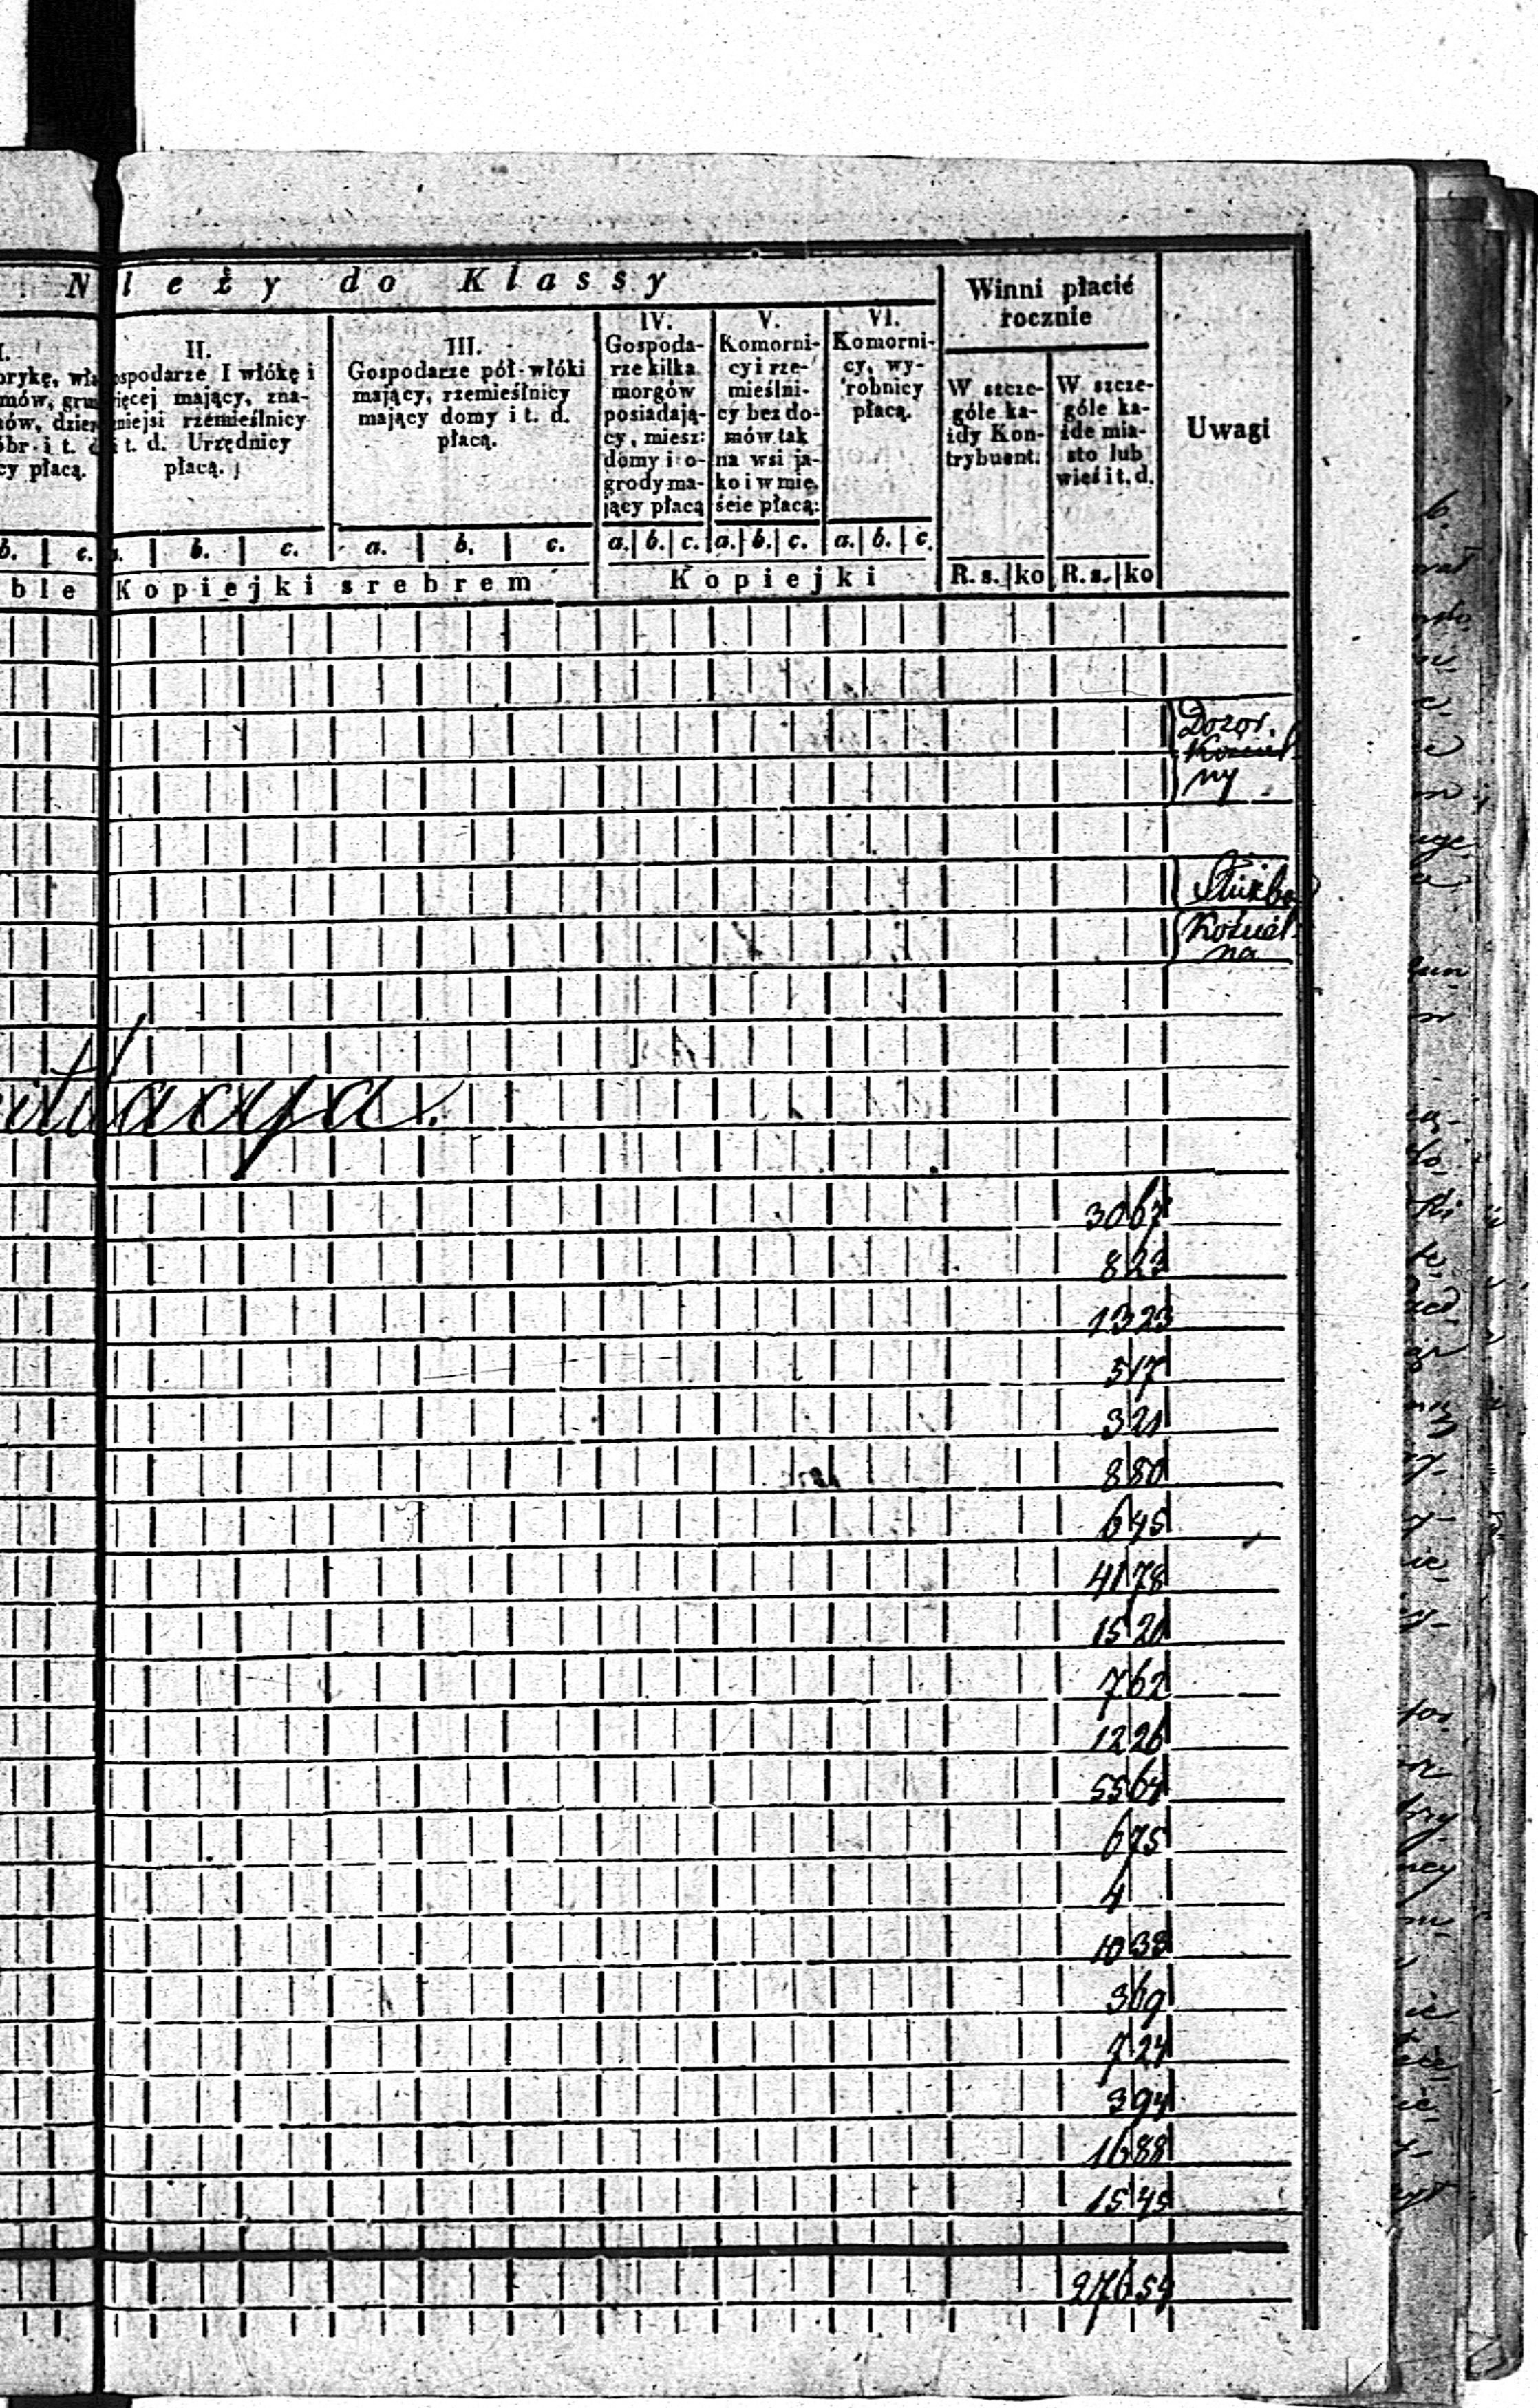 N leży do Klassy
Winni płacić
rocznie
Uwagi
brykę, wła
mów, grun
ów, dzier
óbr i t. d
cy płacą.
II.
ospodarze I włókę i
ięcej mający, zna-
mniejsi rzemieślnicy
i t. d. Urzędnicy
płacą.
III.
Gospodarze pół-włóki
mający, rzemieślnicy
mający domy i t. d.
płacą.
IV.
Gospoda-
rze kilka
morgów
posiadają-
cy, miesz:
domy i o-
grody ma-
jący płacą
V.
Komorni-
cy i rze-
mieślni-
cy bez do-
mów tak
na wsi ja-
ko i w mie-
ście płacą:
VI.
Komorni-
cy, wy-
robnicy
płacą.
W szcze-
góle ka-
żdy Kon-
trybuent.
W szcze-
góle ka-
żde mia-
sto lub
wieś i t. d.
b. c. b. c. a. b. c. a. b. c. a. b. c. a. b. c.
ble Kopiejki srebrem Kopiejki R. s. ko R. s. ko
Dozor.
Kościel-
ny
Służba
Kościel-
na
itulacya.
30 67
8 23
13 23
5 17
3 21
8 80
6 45
41 78
15 20
7 62
12 26
55 64
6 75
4
10 38
3 69
7 24
3 94
16 88
15 45
276 59